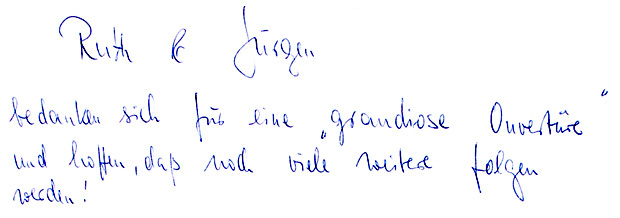 Ruth & Jürgen
bedanken sich für eine „grandiose Ouvertüre"
und hoffen, daß noch viele weitere folgen
werden!